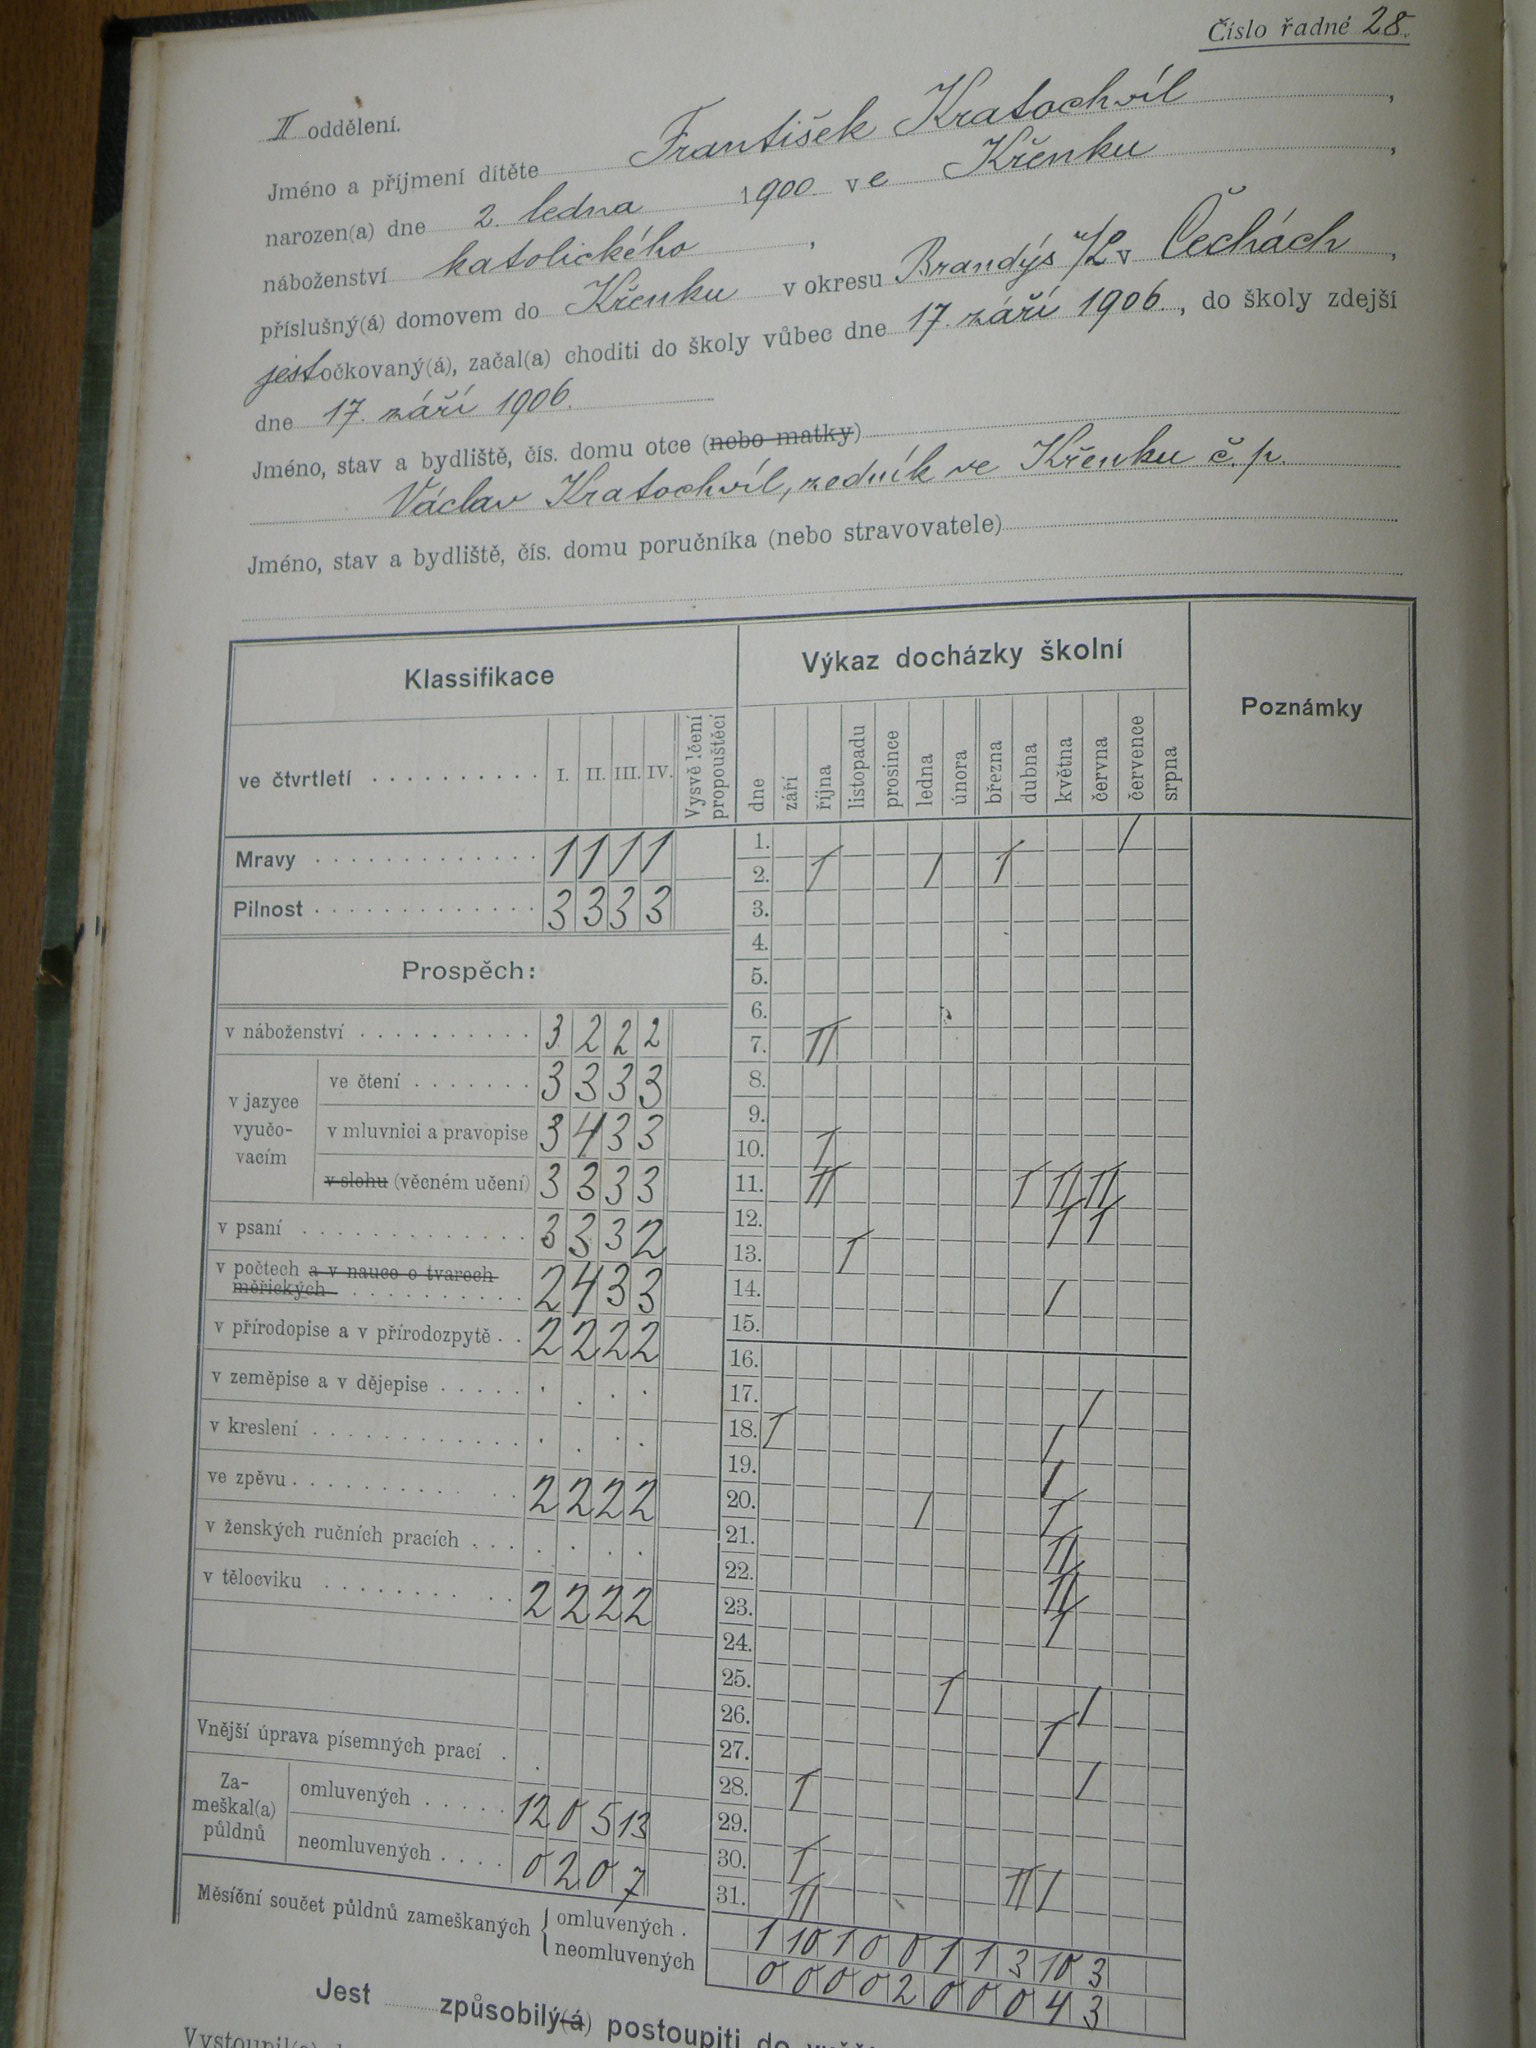 Číslo řadné 28.
II oddělení.
Jméno a příjmení dítěte František Kratochvíl,
narozen(a) dne 2. ledna 1900 ve Křenku,
náboženství katolického,
příslušný(á) domovem do Křenku v okresu Brandýs n/L v Čechách,
jest očkovaný(á), začal(a) choditi do školy vůbec dne 17. září 1906., do školy zdejší
dne 17. září 1906.
Jméno, stav a bydliště, čís. domu otce (nebo matky)
Václav Kratochvíl, zedník ve Křenku č. p.
Jméno, stav a bydliště, čís. domu poručníka (nebo stravovatele)
Klassifikace Výkaz docházky školní Poznámky
ve čtvrtletí I. II. III. IV. Vysvědčení propouštěcí dne září října listopadu prosince ledna února března dubna května června července srpna
Mravy 1 1 1 1
Pilnost 3 3 3 3
Prospěch:
v náboženství 3 2 2 2
v jazyce vyučovacím
ve čtení 3 3 3 3
v mluvnici a pravopise 3 4 3 3
v slohu (věcném učení) 3 3 3 3
v psaní 3 3 3 2
v počtech a v nauce o tvarech
měřických 2 4 3 3
v přírodopise a v přírodozpytě 2 2 2 2
v zeměpise a v dějepise
v kreslení
ve zpěvu 2 2 2 2
v ženských ručních pracích
v tělocviku 2 2 2 2
Vnější úprava písemných prací
Zameškal(a) půldnů
omluvených 12 0 5 13
neomluvených 0 2 0 7
1.
2.
3.
4.
5.
6.
7.
8.
9.
10.
11.
12.
13.
14.
15.
16.
17.
18.
19.
20.
21.
22.
23.
24.
25.
26.
27.
28.
29.
30.
31.
Měsíční součet půldnů zameškaných
omluvených 1 10 1 0 0 1 1 3 10 3
neomluvených 0 0 0 0 2 0 0 0 4 3
Jest způsobilý(á) postoupiti do